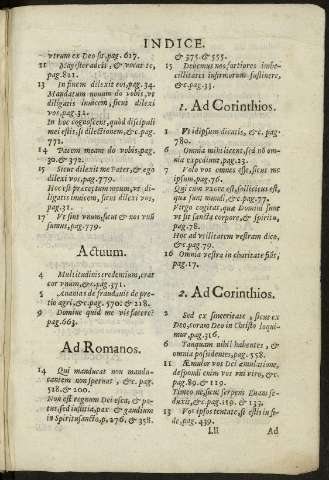 INDICE.
vtrum ex Deo sit, pag. 617.
11 Magister adest, & vocat te,
pag. 821.
13 In finem dilexit eos, pag. 34.
Mandatum nouum do vobis, vt
diligatis inuicem, sicut dilexi
vos, pag. 32.
In hoc cognoscent, quòd discipuli
mei estis, si dilectionem, &c. pag.
772.
14 Pacem meam do vobis, pag.
30. & 372.
15 Sicut dilexit me Pater, & ego
dilexi vos, pag. 779.
Hoc est præceptum meum, vt di-
ligatis inuicem, sicut dilexi vos,
pag. 31.
17 Vt sint vnum, sicut & nos vnũ
sumus, pag. 779.
Actuum.
4 Multitudinis credentium, erat
cor vnum, &c. pag. 371.
5 Ananias de fraudauit de pre-
tio agri, &c. pag. 570. & 218.
9 Domine quid me vis facere?
pag. 663.
Ad Romanos.
14 Qui manducat non mandu-
cantem non spernat, &c. pag.
518. & 200.
Non est regnum Dei esca, & po-
tus, sed iustitia, pax & gaudium
in Spiritu sancto, p. 276. & 358.
& 375. & 555.
15 Debemus nos fortiores imbe-
cillitates infirmorum sustinere,
&c. pag. 33.
1. Ad Corinthios.
1 Vt idipsum dicatis, &c. pag.
780.
6 Omnia mihi licent, sed nõ om-
nia expediunt, pag. 23.
7 Volo vos omnes esse, sicut me
ipsum, pag. 76.
Qui cum vxore est, sollicitus est,
quæ sunt mundi, &c. pag. 77.
Virgo cogitat, quæ Domini sunt
vt sit sancta corpore, & spiritu,
pag. 78.
Hoc ad vtilitatem vestram dico,
&c. pag. 79.
16 Omnia vestra in charitate fiãt,
pag. 17.
2. Ad Corinthios.
2 Sed ex sinceritate, sicut ex
Deo, coram Deo in Christo loqui-
mur, pag. 316.
6 Tanquam nihil habentes, &
omnia possidentes, pag. 558.
11 Æmulor vos Dei æmulatione,
despondi enim vos vni viro, &c.
pag. 89. & 119.
Timeo ne, sicut serpens Euam se-
duxit, &c. pag. 119. & 137.
13 Vos ipsos tentate, si estis in fi-
de, pag. 439.
Lll Ad